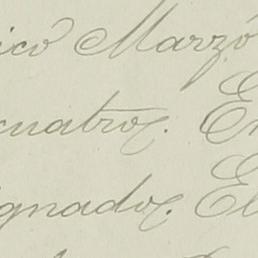 icó Marzó
cuatro. En
ignado. El